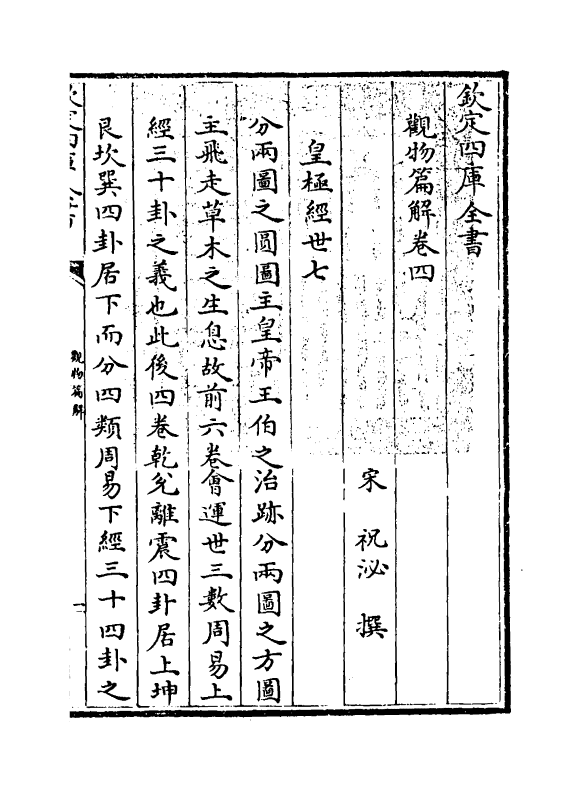 欽定四庫全書
觀物篇解卷四
宋 祝泌 撰
皇極經世七
分兩圖之圓圖主皇帝王伯之治跡分兩圖之方圖
主飛走草木之生息故前六卷會運世三數周易上
經三十卦之義也此後四卷乾兊離震四卦居上坤
艮坎巽四卦居下而分四類周易下經三十四卦之
欽定四庫全書
觀物篇解
一